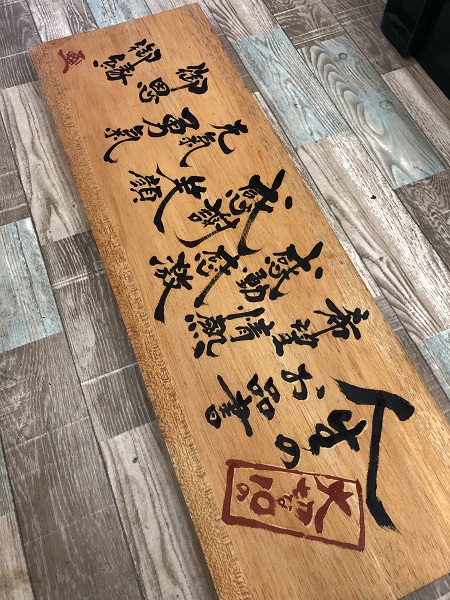 大切な10の
人生の
お品書
希望 情熱
感動 感激
感謝 笑顔
元氣 勇氣
御恩
御縁